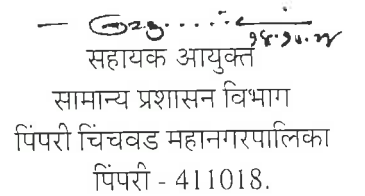 सहायक आयुक्त
सामान्य प्रशासन विभाग
पिंपरी चिंचवड महानगरपालिका
पिंपरी - 411018.